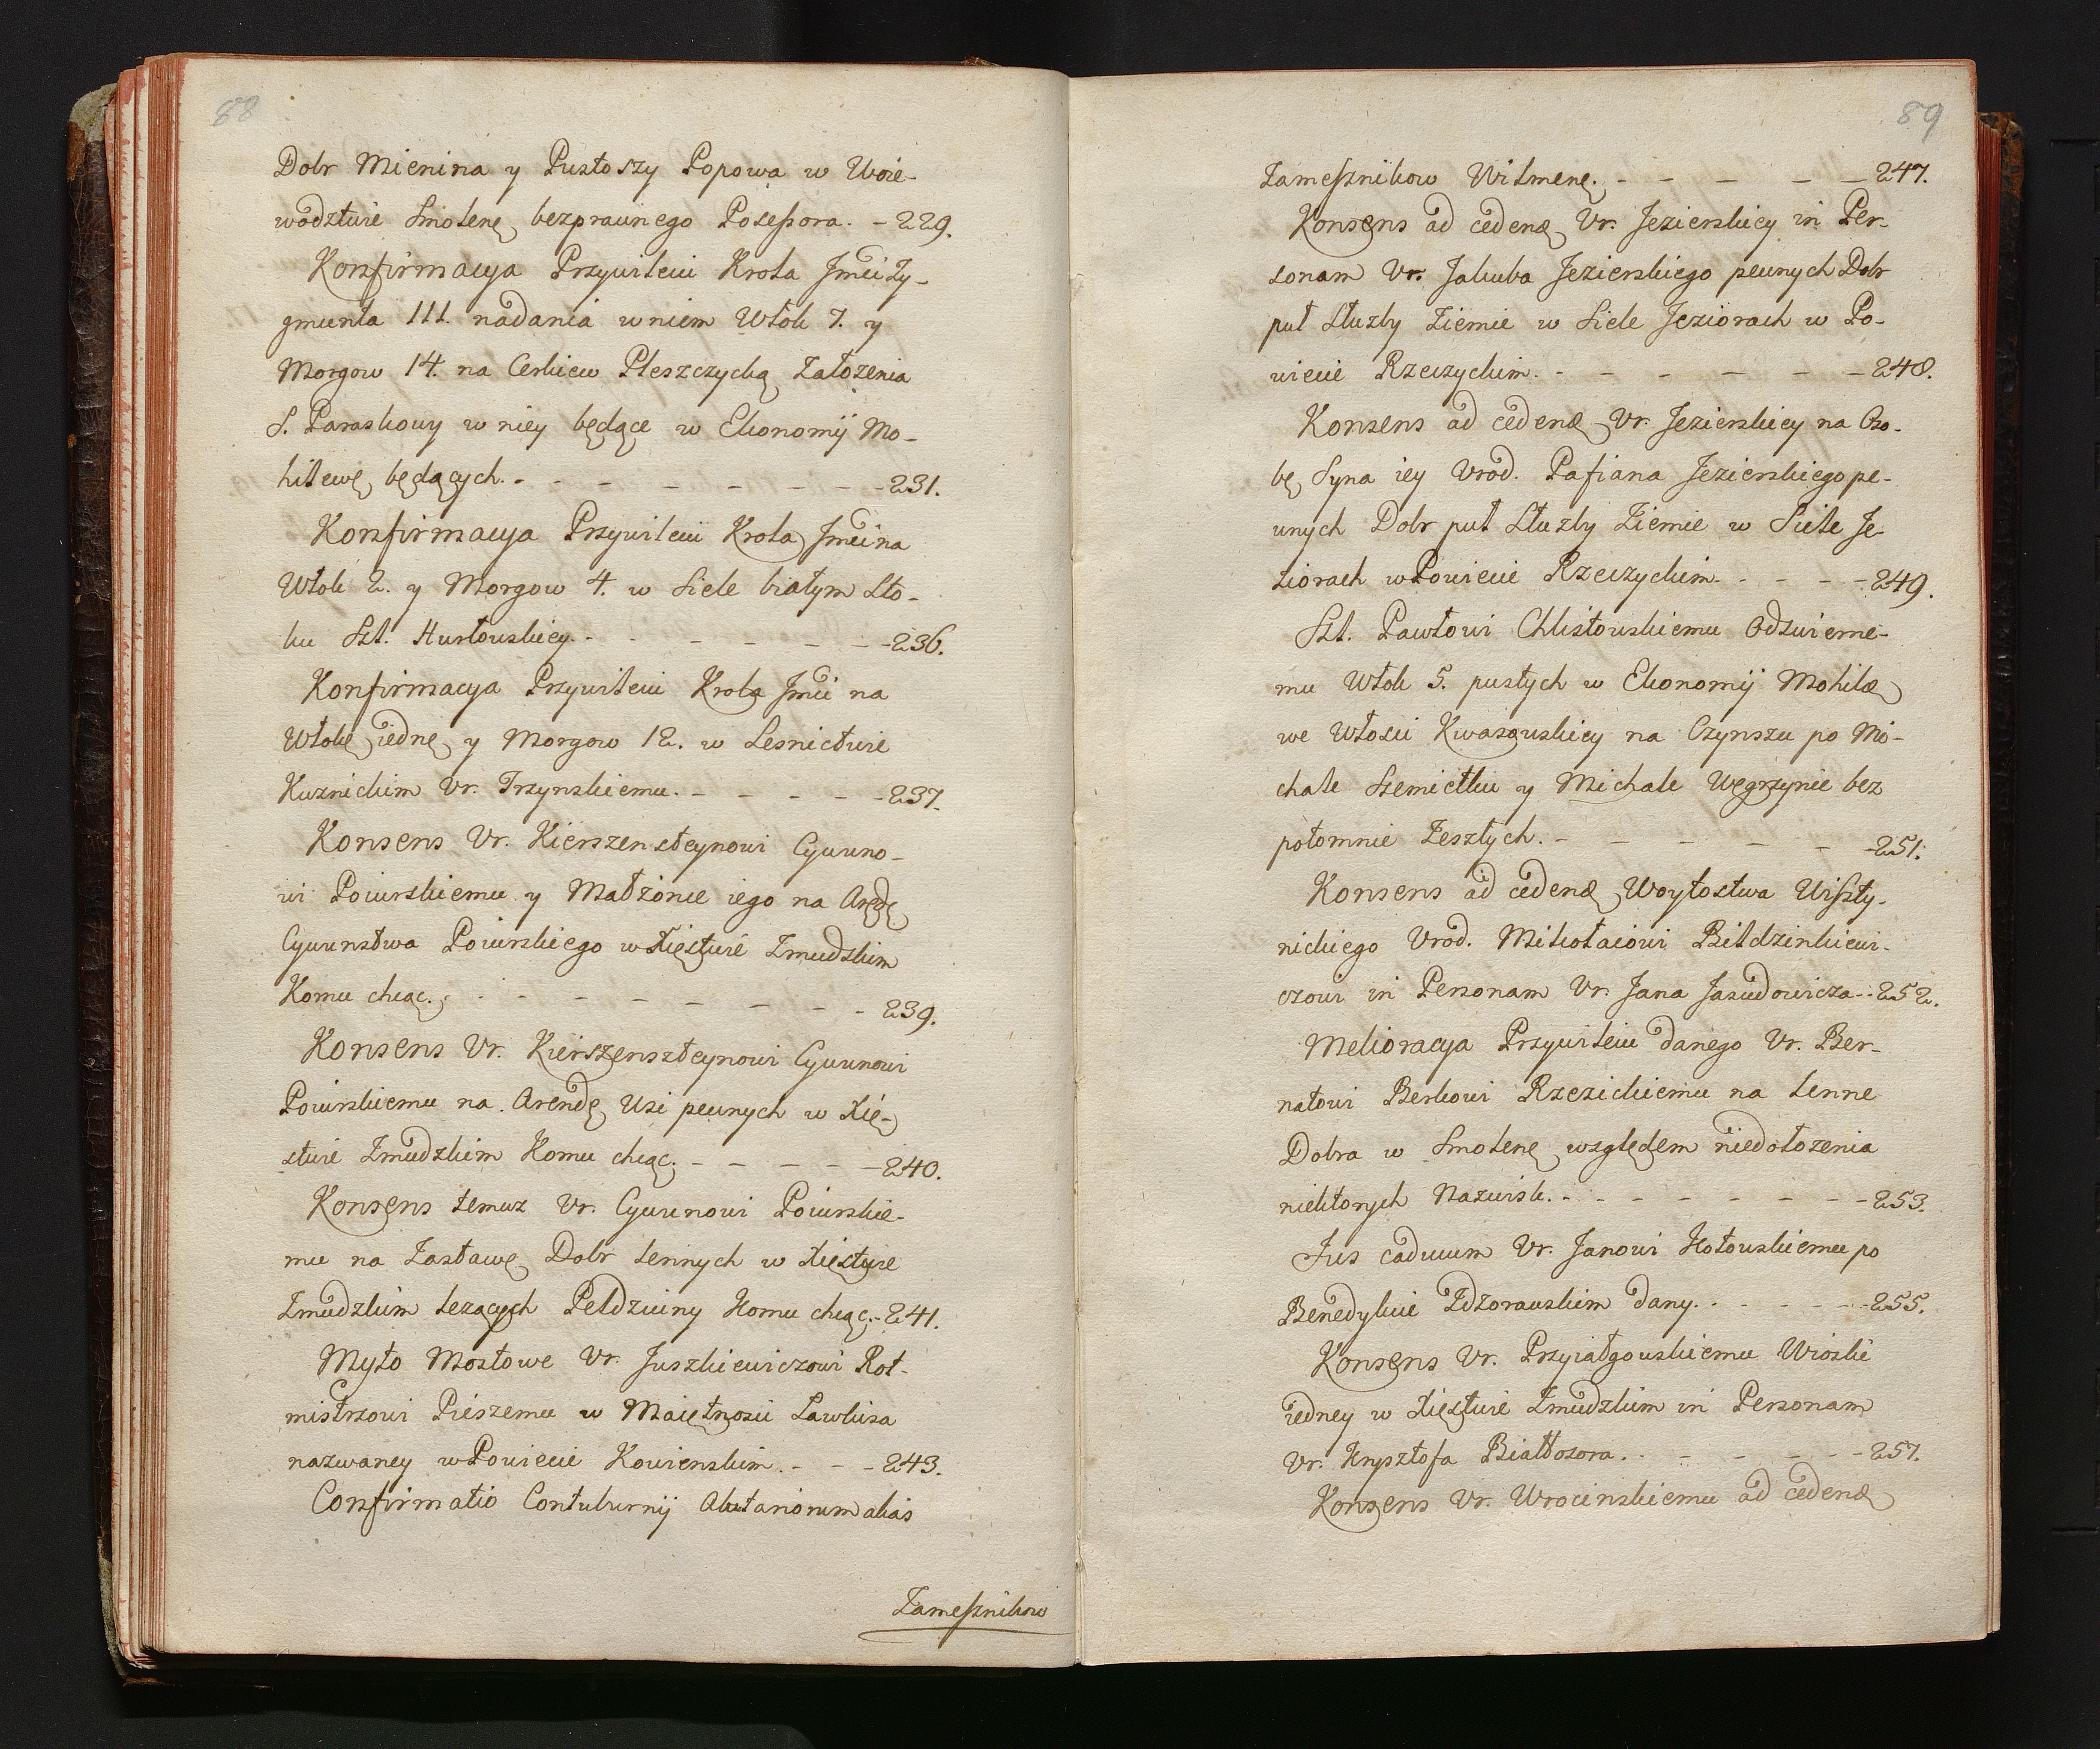 88
Dobr Mienina y Pustoszy Popowa w Woie-
wodztwie Smolenẹ bezprawnego Posessora. - 229.
Konfirmacya Przywileiu Krola Jmći Zy-
gmunta III. nadania w niem Włok 7. y
Morgow 14. na Cerkiew Pleszczycką Załozenia
S. Paraskowy w niey będące w Ekonomij Mo-
hilewę będących. - - - - - - - 231.
Konfirmacya Przywileiu Krola Jmći na
Włok 2. y Morgow 4. w Siele białym Sto-
ku Szl. Hurłowskiey. - - - - - 236.
Konfirmacya Przywileiu Krola Jmći na
Włokę iednę y Morgow 12. w Lesnictwie
Kuznickim Vr. Trzynskiemu. - - - - - 237.
Konsens Vr. Kierszensteynowi Cywuno-
wi Poiurskiemu y Małżonce iego na Arędę
Cywunstwa Poiurskiego w Xięstwie Zmudzkim
Komu chcąc. - - - - - - - - 239.
Konsens Vr. Kierszenszteynowi Cywunowi
Poiurskiemu na Arendę Wsi pewnych w Xię-
stwie Zmudzkim Komu chcąc. - - - - - 240.
Konsens temuz Vr. Cywunowi Poiurskie-
mu na Zastawę Dobr lennych w Xięstwie
Zmudzkim lezących Peldziuiny Komu chcąc. - 241.
Myto Mostowe Vr. Juszkiewiczowi Rot-
mistrzowi Pieszemu w Maiętnosci Lawkisa
nazwaney w Powiecie Kowienskim. - - - 243.
Confirmatio Contubernij Alutariorum alias
Zamesznikow
89
Zamesznikow Wilmenę. - - - - - 247.
Konsens ad cedenđ Vr. Jezierskiey in Per-
sonam Vr. Jakuba Jezierskiego pewnych Dobr
puł Służby Ziemie w Siele Jeziorach w Po-
wiecie Rzeczyckim. - - - - - - 248.
Konsens ad cedenđ Vr. Jezierskiey na Oso-
bę Syna iey Vrod. Pafiana Jezierskiego pe-
wnych Dobr puł Służby Ziemie w Siele Je
ziorach w Powiecie Rzeczyckim. - - - - 249.
Szl. Pawłowi Chlistowskiemu Odzwierne-
mu Włok 5. pustych w Ekonomij Mohilę
we Włości Kwasowskiey na Czynszu po Mi-
chale Szemietku y Michale Węgrzynie bez
potomnie Zeszłych. - - - - - - 251.
Konsens ad cedenđ Woytostwa Wiszty-
nickiego Vrod. Mikołaiowi Bildzinkiewi-
czowi in Personam Vr. Jana Jasudowicza - - 252.
Melioracya Przywileiu danego Vr. Ber-
natowi Berkowi Rzezickiemu na Lenne
Dobra w Smolenę względem niedołozenia
niektorych Nazwisk. - - - - - - - 253.
Jus caducum Vr. Janowi Hołowskiemu po
Benedykcie Zdzorawskim dany. - - - - - 255.
Konsens Vr. Przyiałgowskiemu Wioski
iedney w Xięstwie Zmudzkim in Personam
Vr. Krysztofa Białłosora. - - - - - - 257.
Konsens Vr. Wrocinskiemu ad cedenđ